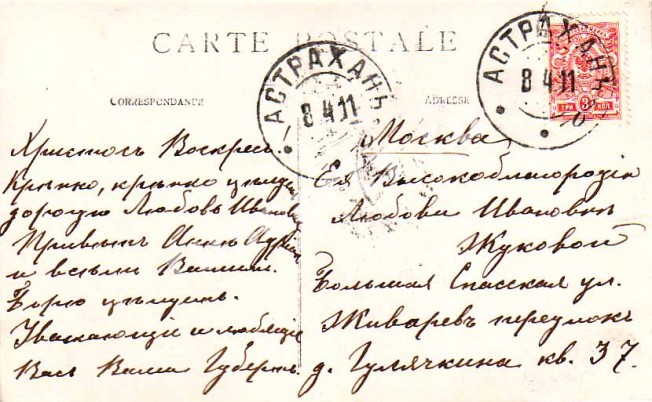 CARTE POSTALE
CORRESPONDANCE
ADRESSE
АСТРАХАНЬ
8 4 11
АСТРАХАНЬ
8 4 11
ТРИ 3 КОП
Христосъ Воскресъ!
Крѣпко, крѣпко цѣлую
дорогую Любовь Ивановну
Привѣтъ Аннѣ
и всѣмъ Вашимъ.
цѣлуетъ.
Уважающій и любящій
Васъ Ваша
Москва
Ея Высокоблагородію
Любови Ивановнѣ
Жуковой
Большая Спасская ул.
Живаревъ переулокъ
д. Гулячкина кв. 37.